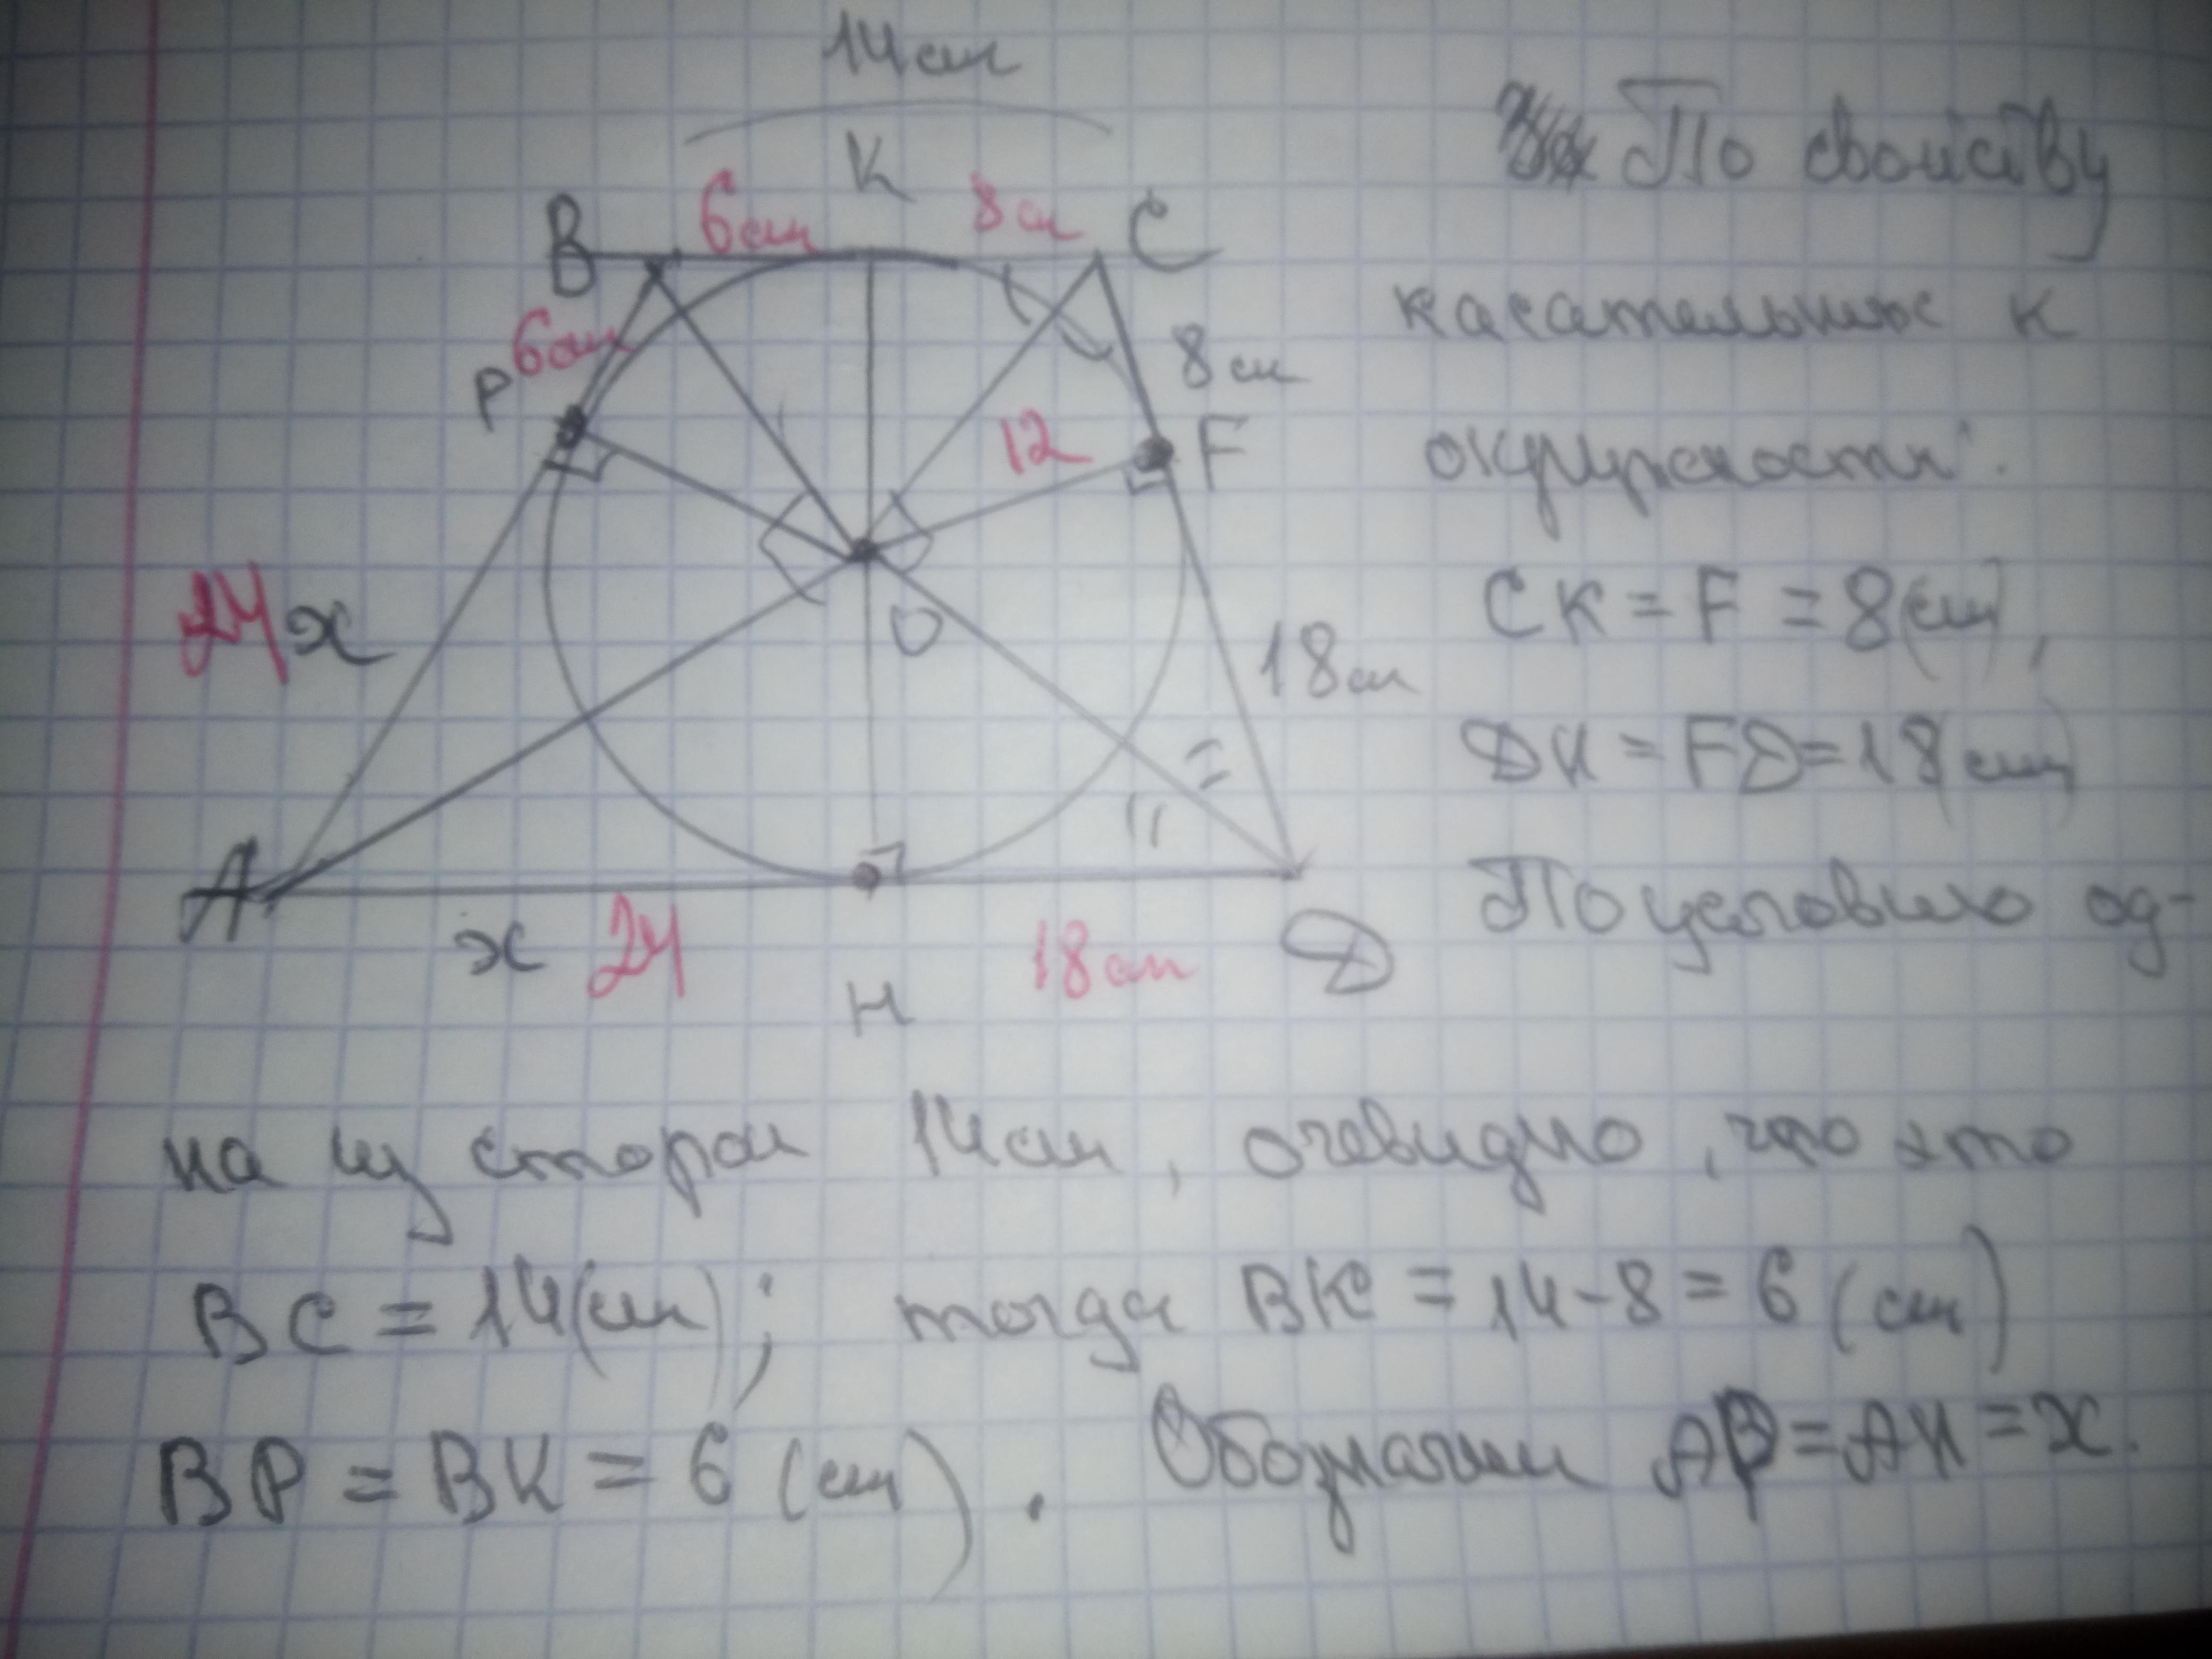 14 см
K
B 6 см 8 см C
P 6 см
8 см
12 F
24 x
O
18 см
A
x 24 18 см D
H
По свойству
касательных к
окружности:
CK = F = 8 (см),
DH = FD = 18 (см)
По условию од-
на из сторон 14 см, очевидно, что это
BC = 14 (см); тогда BK = 14 - 8 = 6 (см)
BP = BK = 6 (см). Обозначим AP = AH = x.